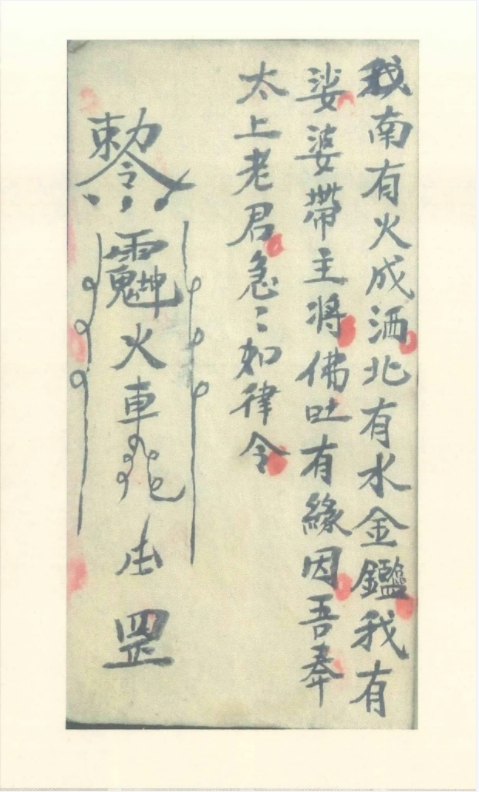 我南有火成洒北有水金鑑我有
娑婆帶主将佛吐有緣因吾奉
太上老君急〻如律令
勅令
火車
罡